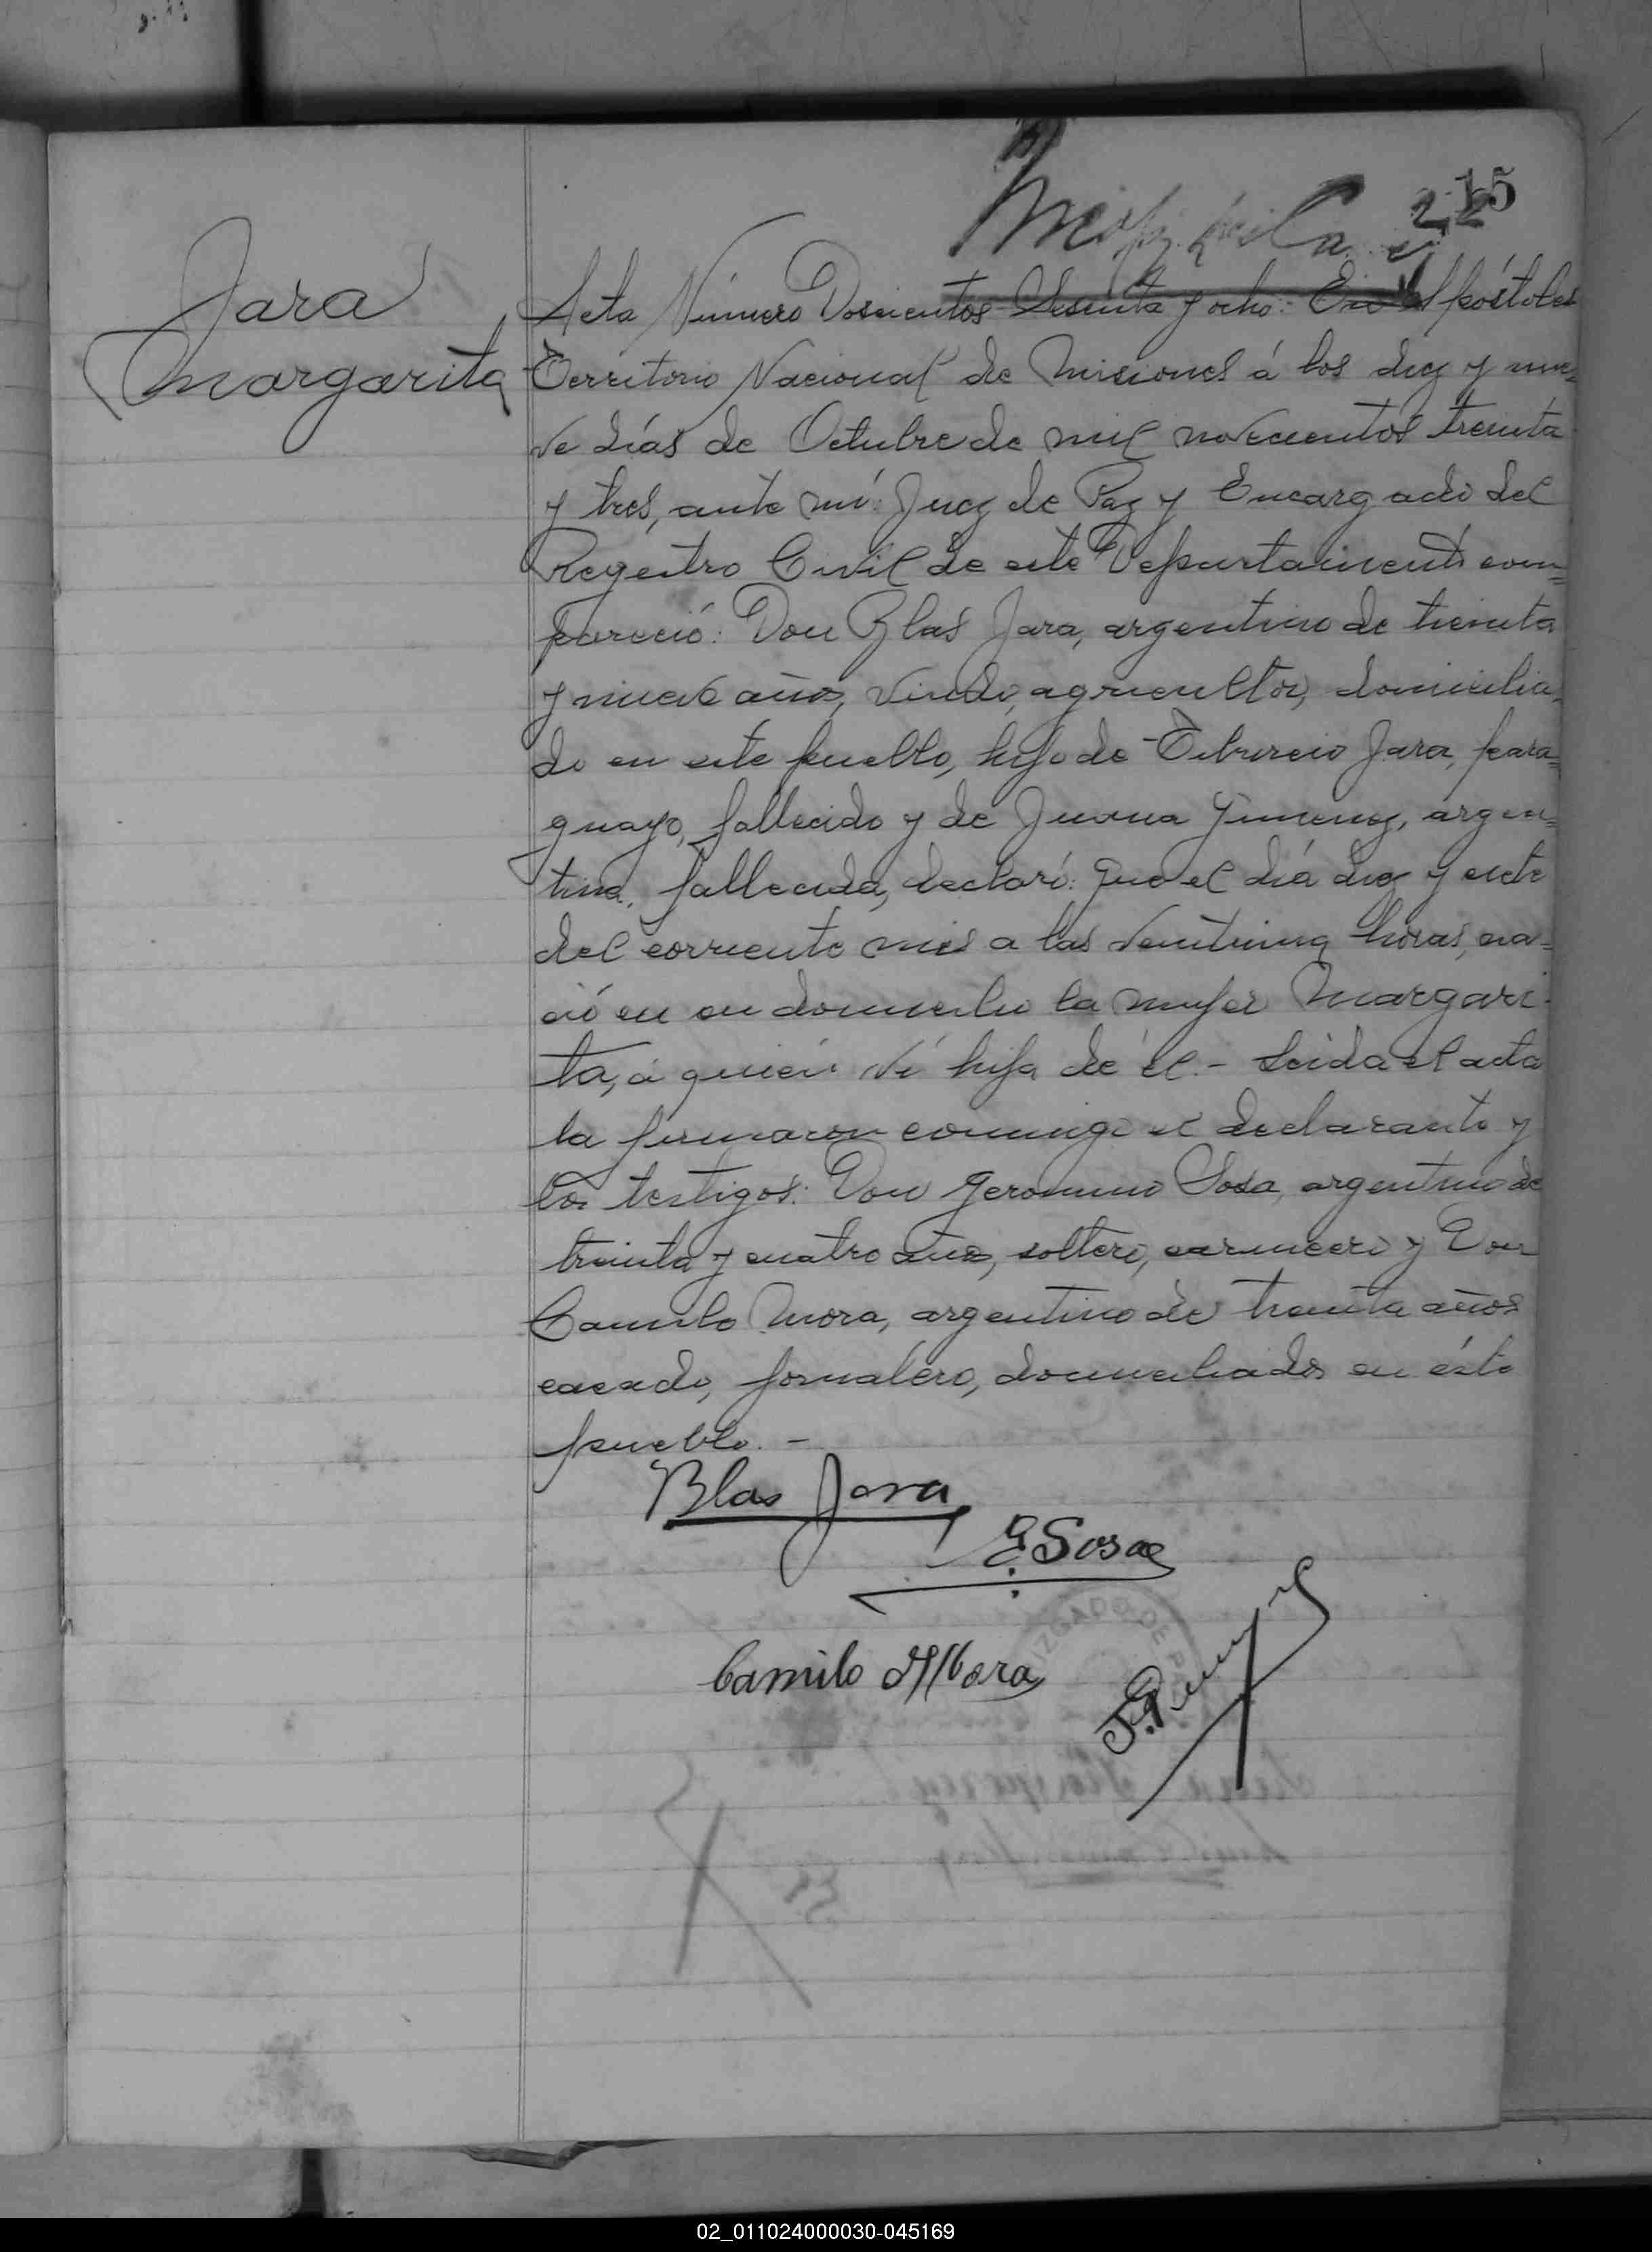 215
Jara
Margarita
Acta Número Doscientos Sesenta y ocho: En Apóstoles
Territorio Nacional de Misiones á los diez y nue=
ve días de Octubre de mil novecientos treinta
y tres, ante mí: Juez de Paz y Encargado del
Registro Civil de este Departamento com=
pareció: Don Blas Jara, argentino de treinta
y nueve años, viudo, agricultor, domicilia=
do en este pueblo, hijo de Tiburcio Jara, para=
guayo, fallecido y de Juana Jimenez, argen=
tina, fallecida, declaró: Que el día diez y siete
del corriente mes a las veintiuna horas, na=
ció en su domicilio la mujer Margari-
ta, á quién ví hija de él.- Leida el acta
la firmaron conmigo el declarante y
los testigos: Don Geronimo Sosa, argentino de
treinta y cuatro años, soltero, carnicero y Don
Camilo Mora, argentino de treinta años
casado, jornalero, domiciliados en éste
pueblo.-
Blas Jara
G Sosa
Camilo Mora
JUZGADO DE P
02_011024000030-045169